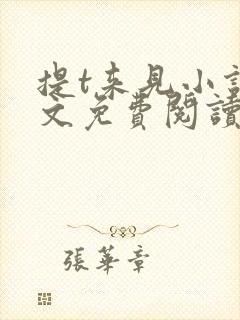 提t来見小
文免費閱讀
張華章